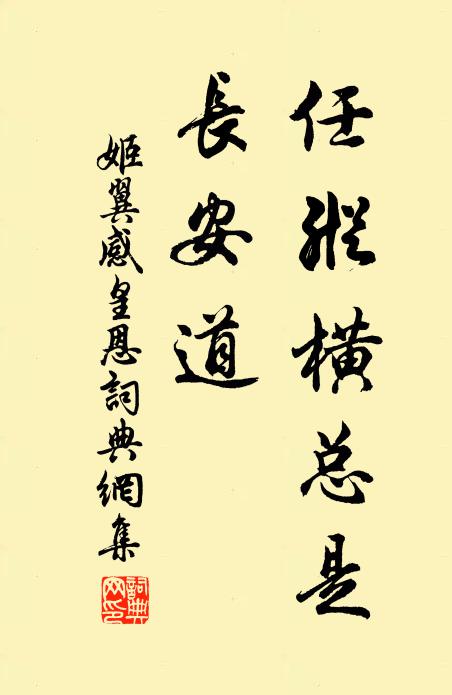 任縱橫总是
長安道
姬翼感皇恩詞典網集
詞典网印